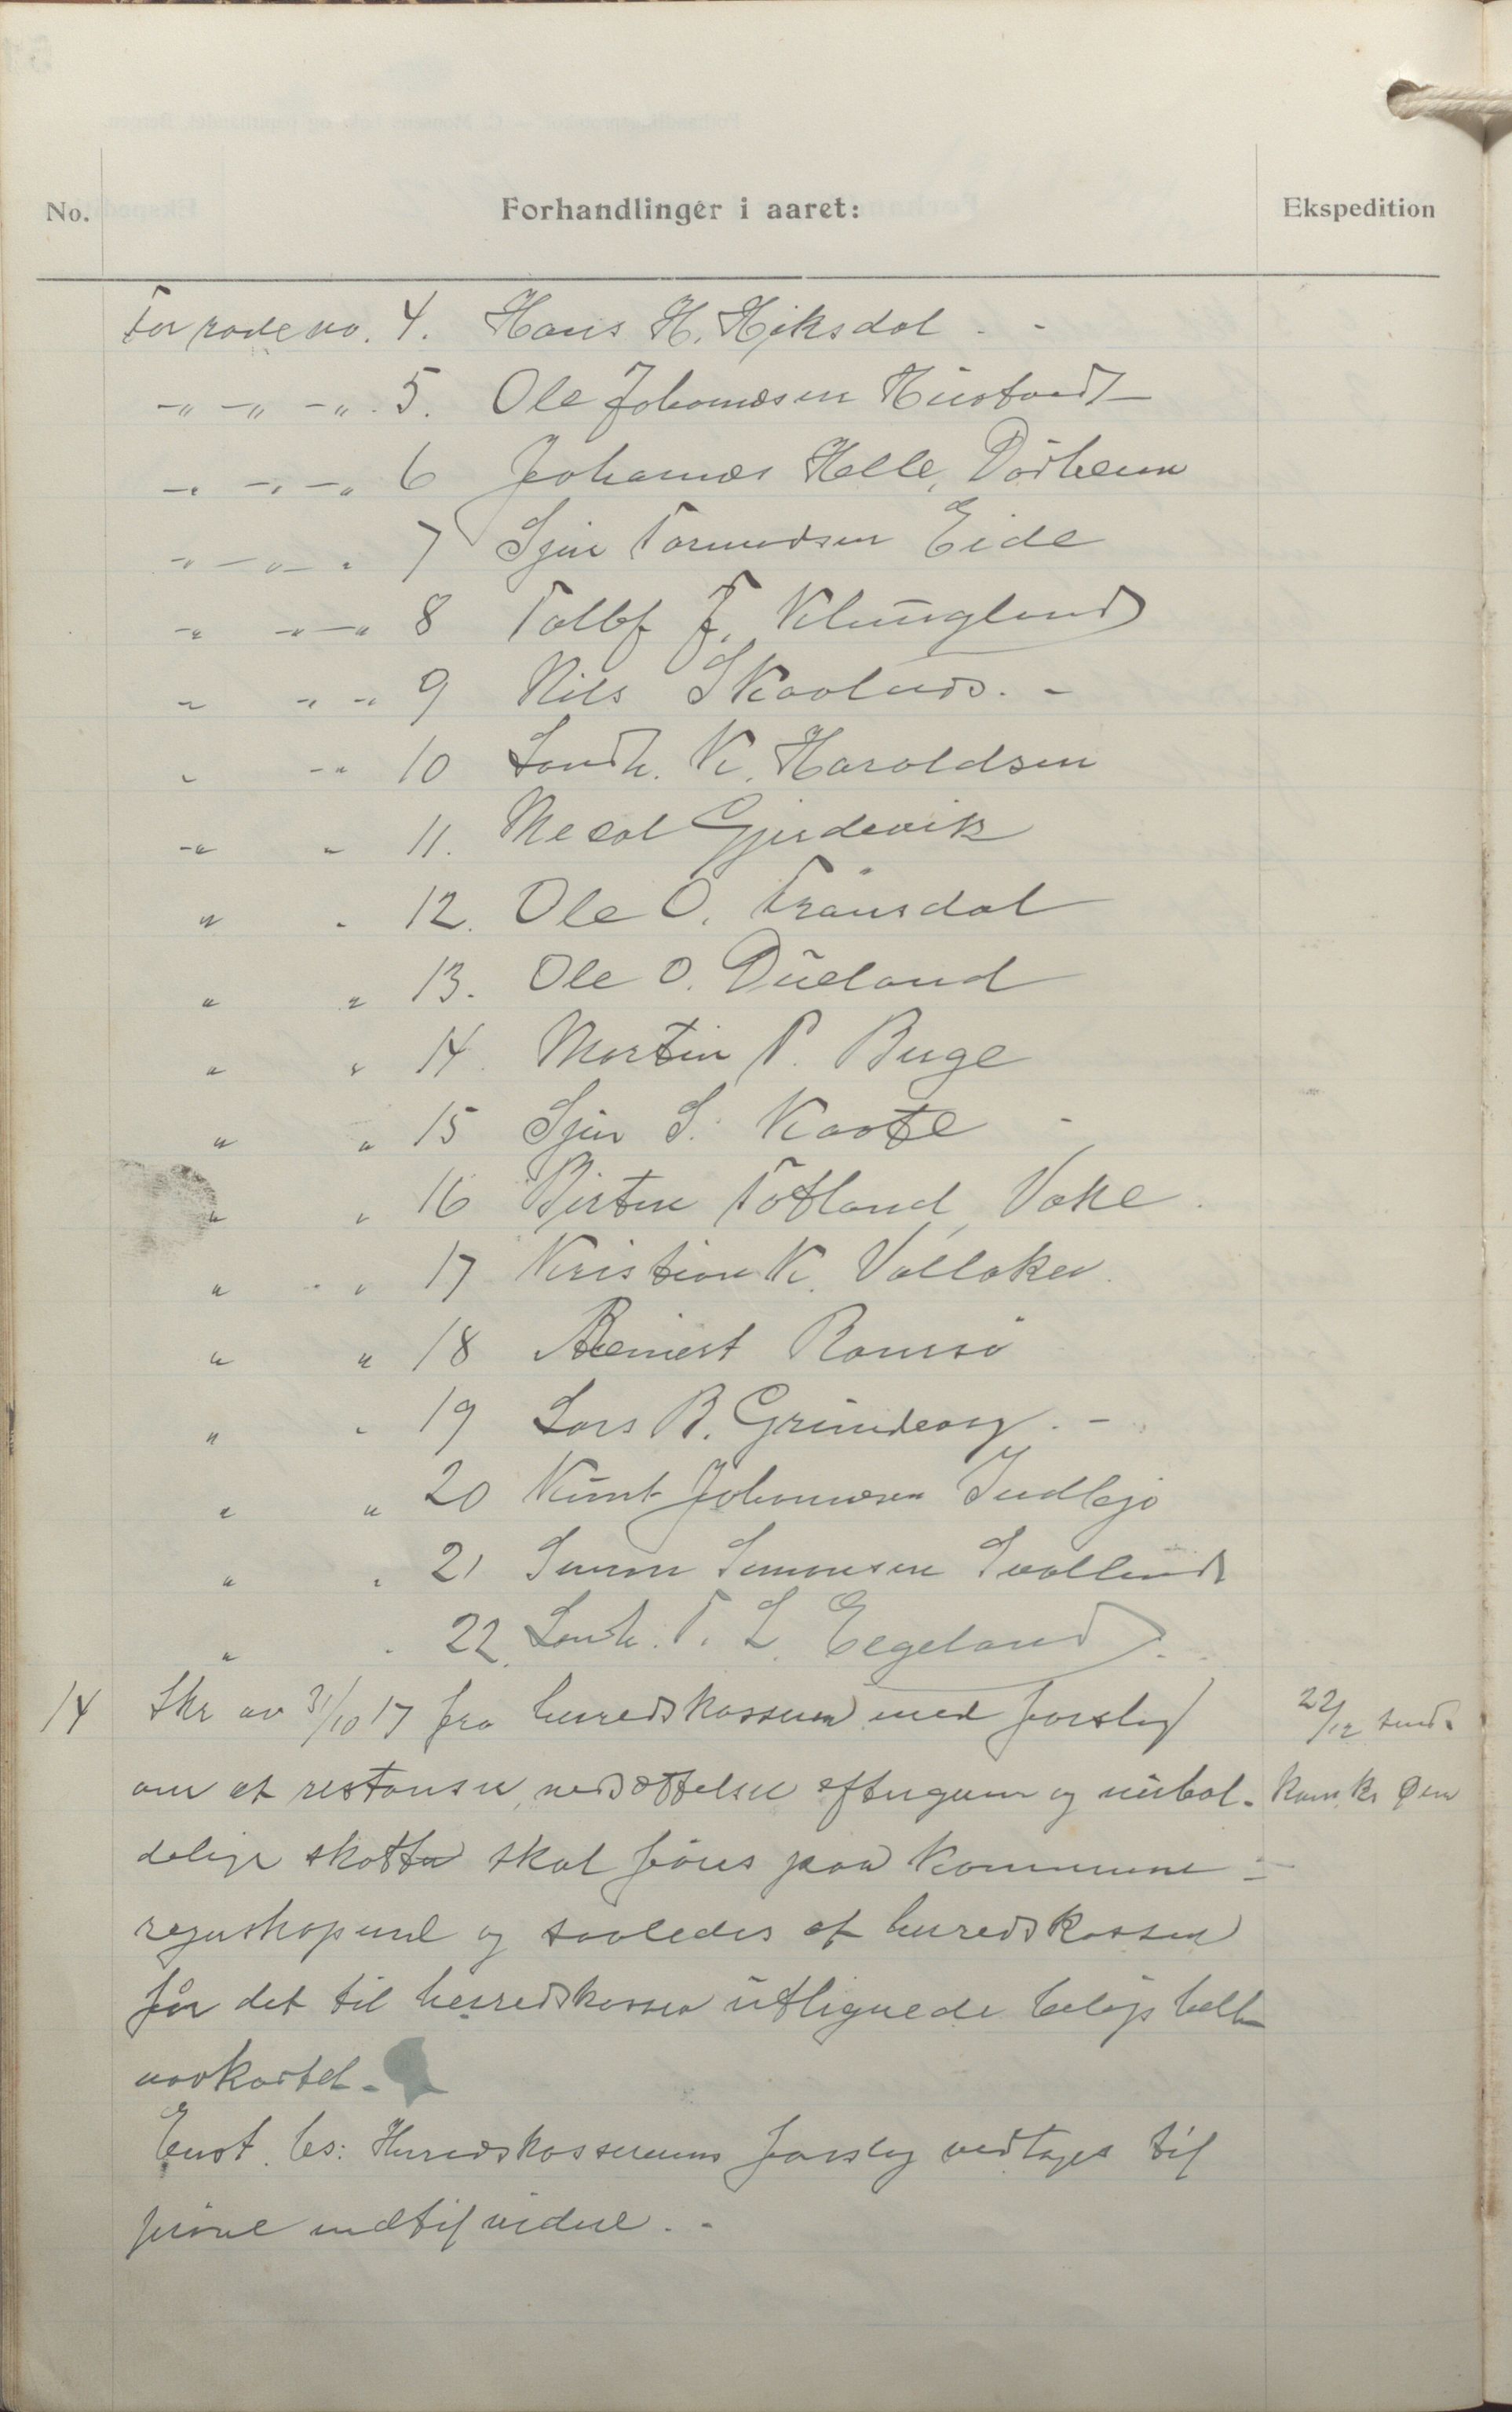 No.
Forhandlinger i aaret:
Ekspedition
For rode no. 4. Hans H. Høksdal - -
-"- -"- -". 5. Ole Johannesen Hustvedt
-"- -"- -" 6 Johannes Helle,
-"- -"- " 7 Sjur Tormodsen Eide
-" -"-" 8 J. Klungland
-" -" -" 9 Nils Skaaluds. -
" -" 10 Landh. K. Haraldsen
-" " 11. Gjerdevik
" " 12. Ole O. Fransdal
" " 13. Ole O. Dueland
" " 14. Martin P. Buge
" " 15 Sjur S. Kaate -
" " 16 Birten Totland, Vake.
" " 17 Kristian K. Vallaker.
" " 18 Reinert Ramsø
" " 19 Lars B. Grindeorg. -
" " 20 Knut Johannesen Indbjo
" " 21 Simon Simonsen
" " 22. Landh. T. L. Eegeland.
14 Skr av 31/10 17 fra herredskasseren med forslag
22/12 send.
om at restanser, nedsættelser eftergivne og uerhol-
delige skatter skal føres paa kommune-
regnskapene og saaledes at herredskassen
får det til herredskassen utlignede beløp helt
uavkortet.-
Enst. bs: Herredskasserens forslag vedtages til
prøve indtil videre. -